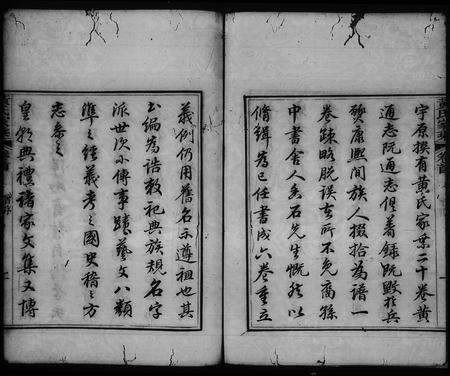 宇原撰有黃氏家乘二十卷黃
通志阮通志俱著錄既毀於兵
燹康熙間族人掇拾為譜一
卷疎略脫誤在所不免裔孫
中書舍人香石先生慨然以
脩緝為已任書成六卷重立
義例仍用舊名示遵祖也其
書編為誥敕祀典族規名字
派世次小傳事蹟藝文八類
準之經義考之國史稽之方
志參之
皇朝典禮諸家文集又博